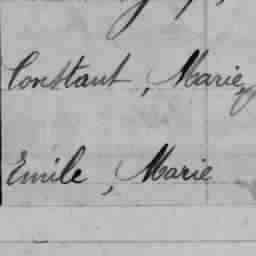 Constant, Marie,
Emile, Marie